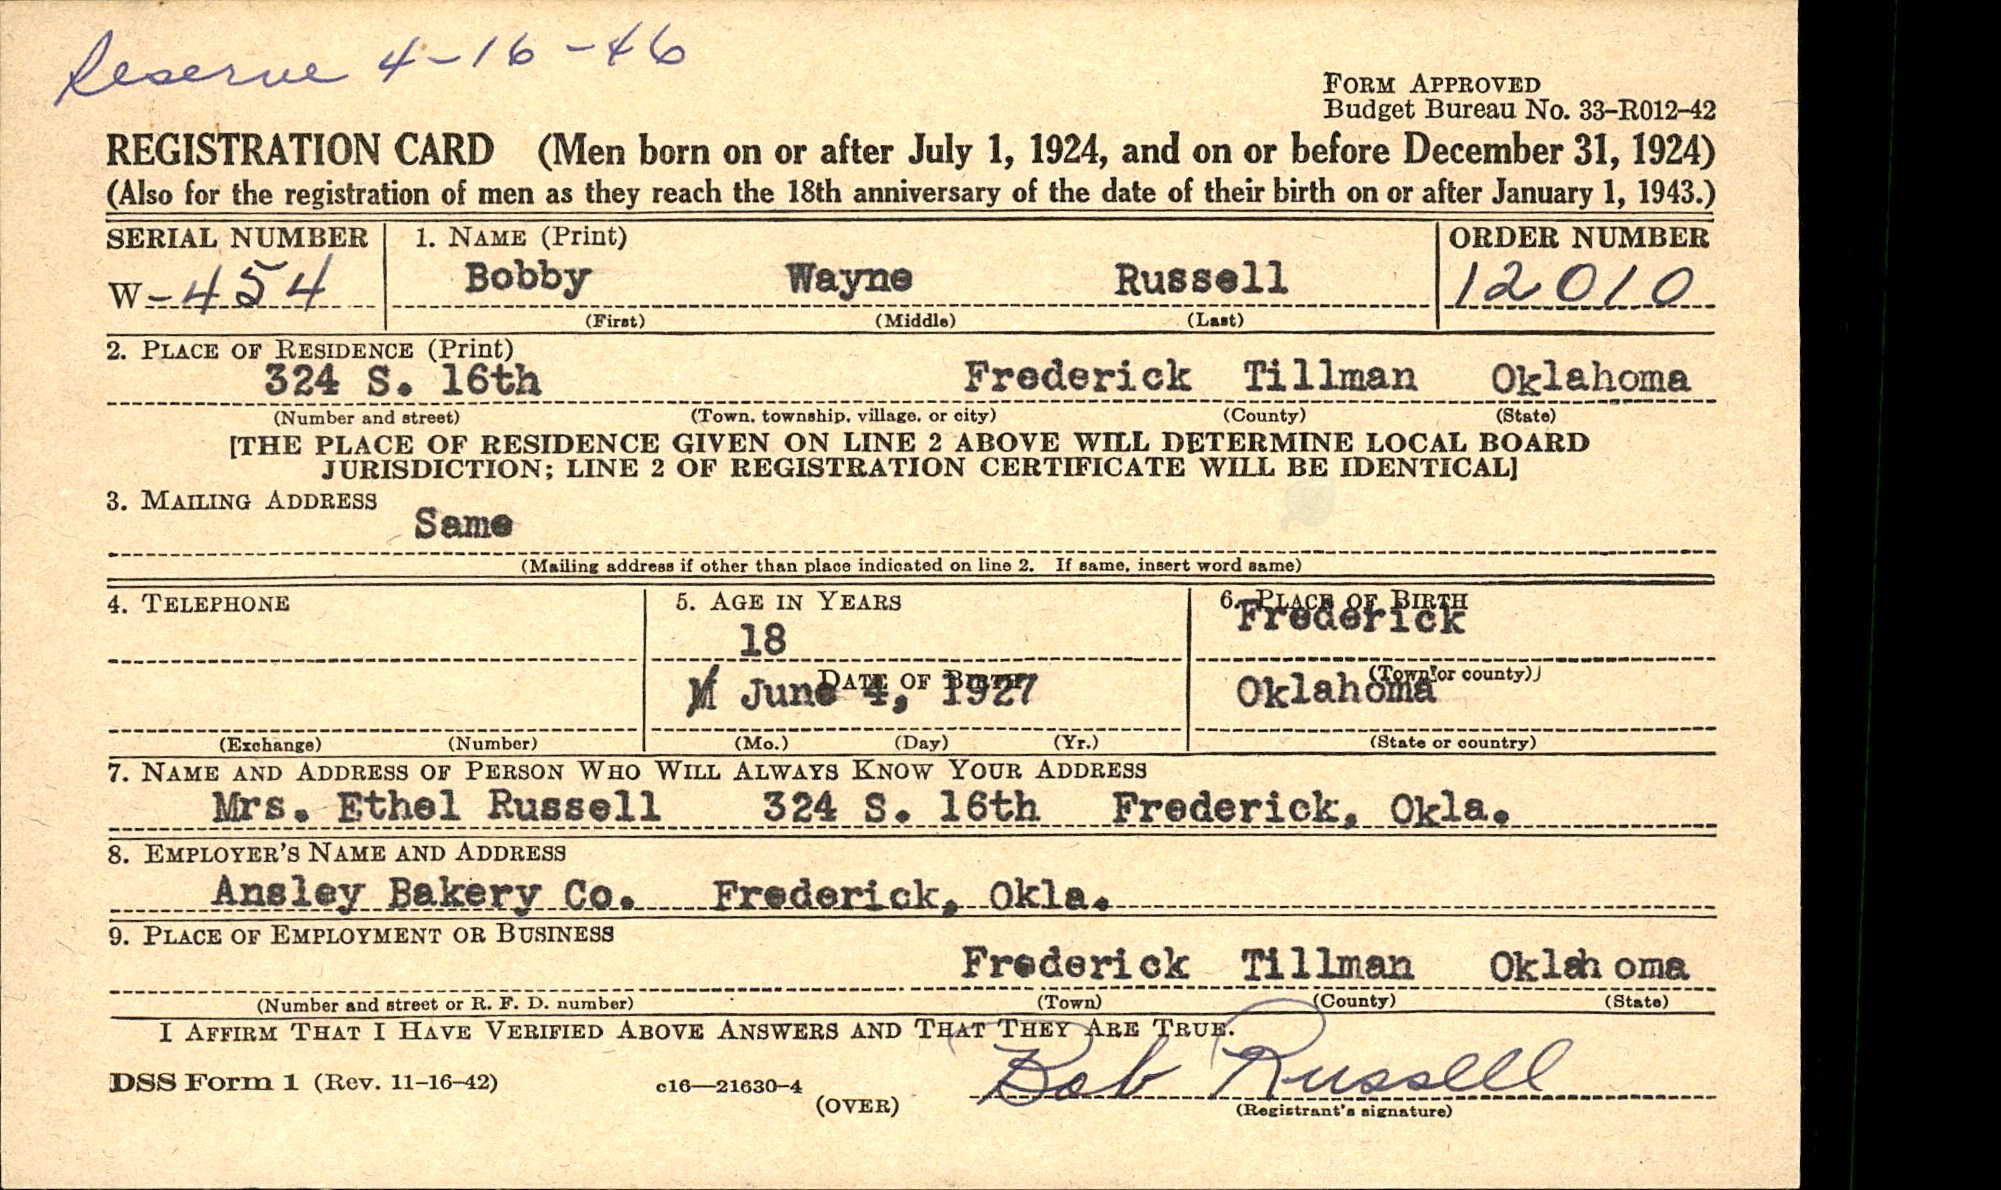 Reserve 4-16-46
FORM APPROVED
Budget Bureau No. 33-R012-42
REGISTRATION CARD (Men born on or after July 1, 1924, and on or before December 31, 1924)
(Also for the registration of men as they reach the 18th anniversary of the date of their birth on or after January 1, 1943.)
SERIAL NUMBER 1. NAME (Print) ORDER NUMBER
W-454 Bobby Wayne Russell 12010
(First) (Middle) (Last)
2. PLACE OF RESIDENCE (Print)
324 S. 16th Frederick Tillman Oklahoma
(Number and street) (Town, township, village, or city) (County) (State)
[THE PLACE OF RESIDENCE GIVEN ON LINE 2 ABOVE WILL DETERMINE LOCAL BOARD
JURISDICTION; LINE 2 OF REGISTRATION CERTIFICATE WILL BE IDENTICAL]
3. MAILING ADDRESS
Same
(Mailing address if other than place indicated on line 2. If same, insert word same)
4. TELEPHONE 5. AGE IN YEARS 6. PLACE OF BIRTH
18 Frederick
DATE OF BIRTH (Town or county)
June 4, 1927 Oklahoma
(Exchange) (Number) (Mo.) (Day) (Yr.) (State or country)
7. NAME AND ADDRESS OF PERSON WHO WILL ALWAYS KNOW YOUR ADDRESS
Mrs. Ethel Russell 324 S. 16th Frederick, Okla.
8. EMPLOYER'S NAME AND ADDRESS
Ansley Bakery Co. Frederick, Okla.
9. PLACE OF EMPLOYMENT OR BUSINESS
Frederick Tillman Oklahoma
(Number and street or R. F. D. number) (Town) (County) (State)
I AFFIRM THAT I HAVE VERIFIED ABOVE ANSWERS AND THAT THEY ARE TRUE.
DSS Form 1 (Rev. 11-16-42) c16—21630-4 Bob Russell
(OVER) (Registrant's signature)